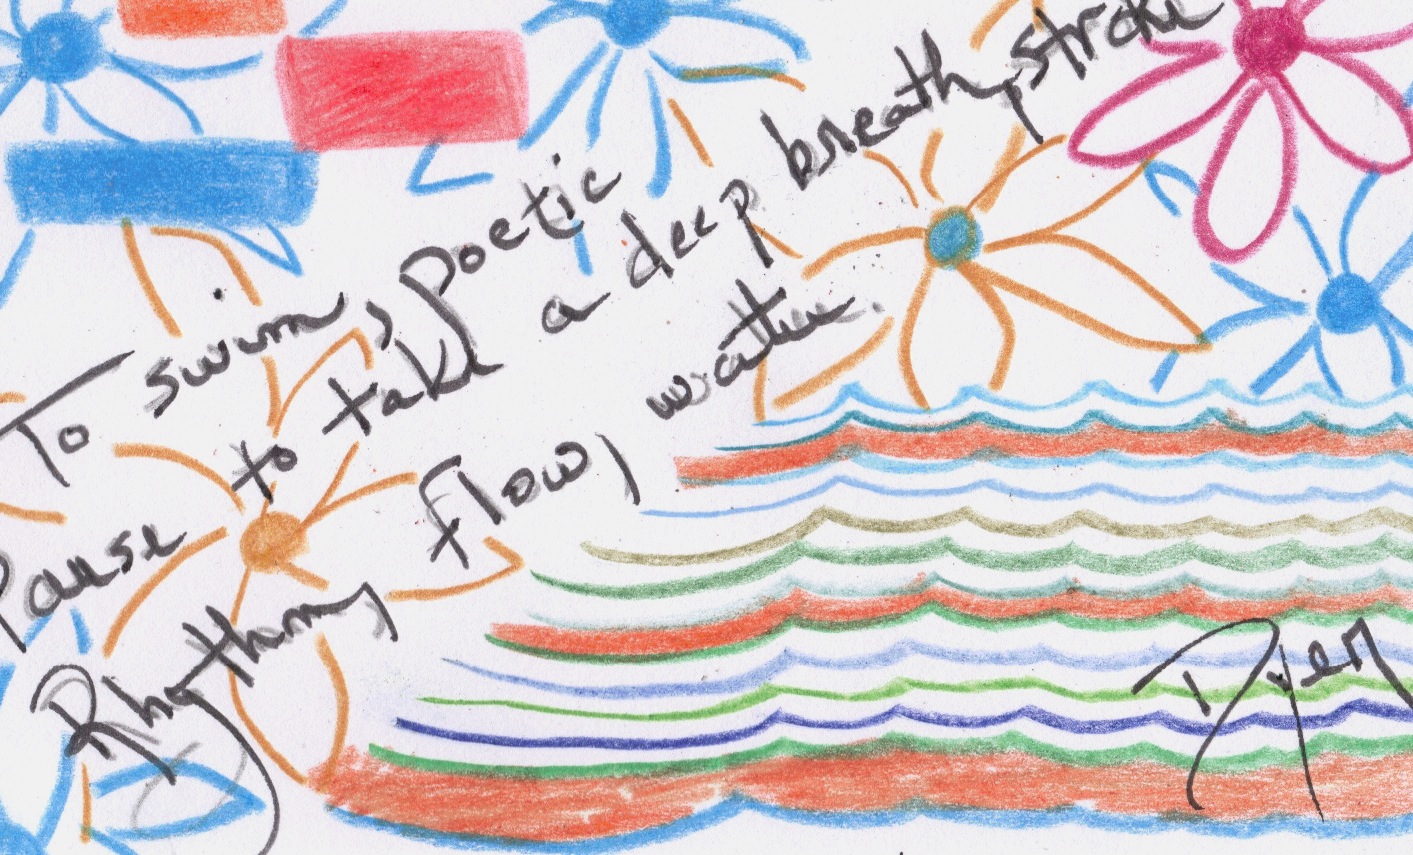 To swim, poetic
Pause to take a deep breath, stroke
Rhythm, flow, water.
Dyen